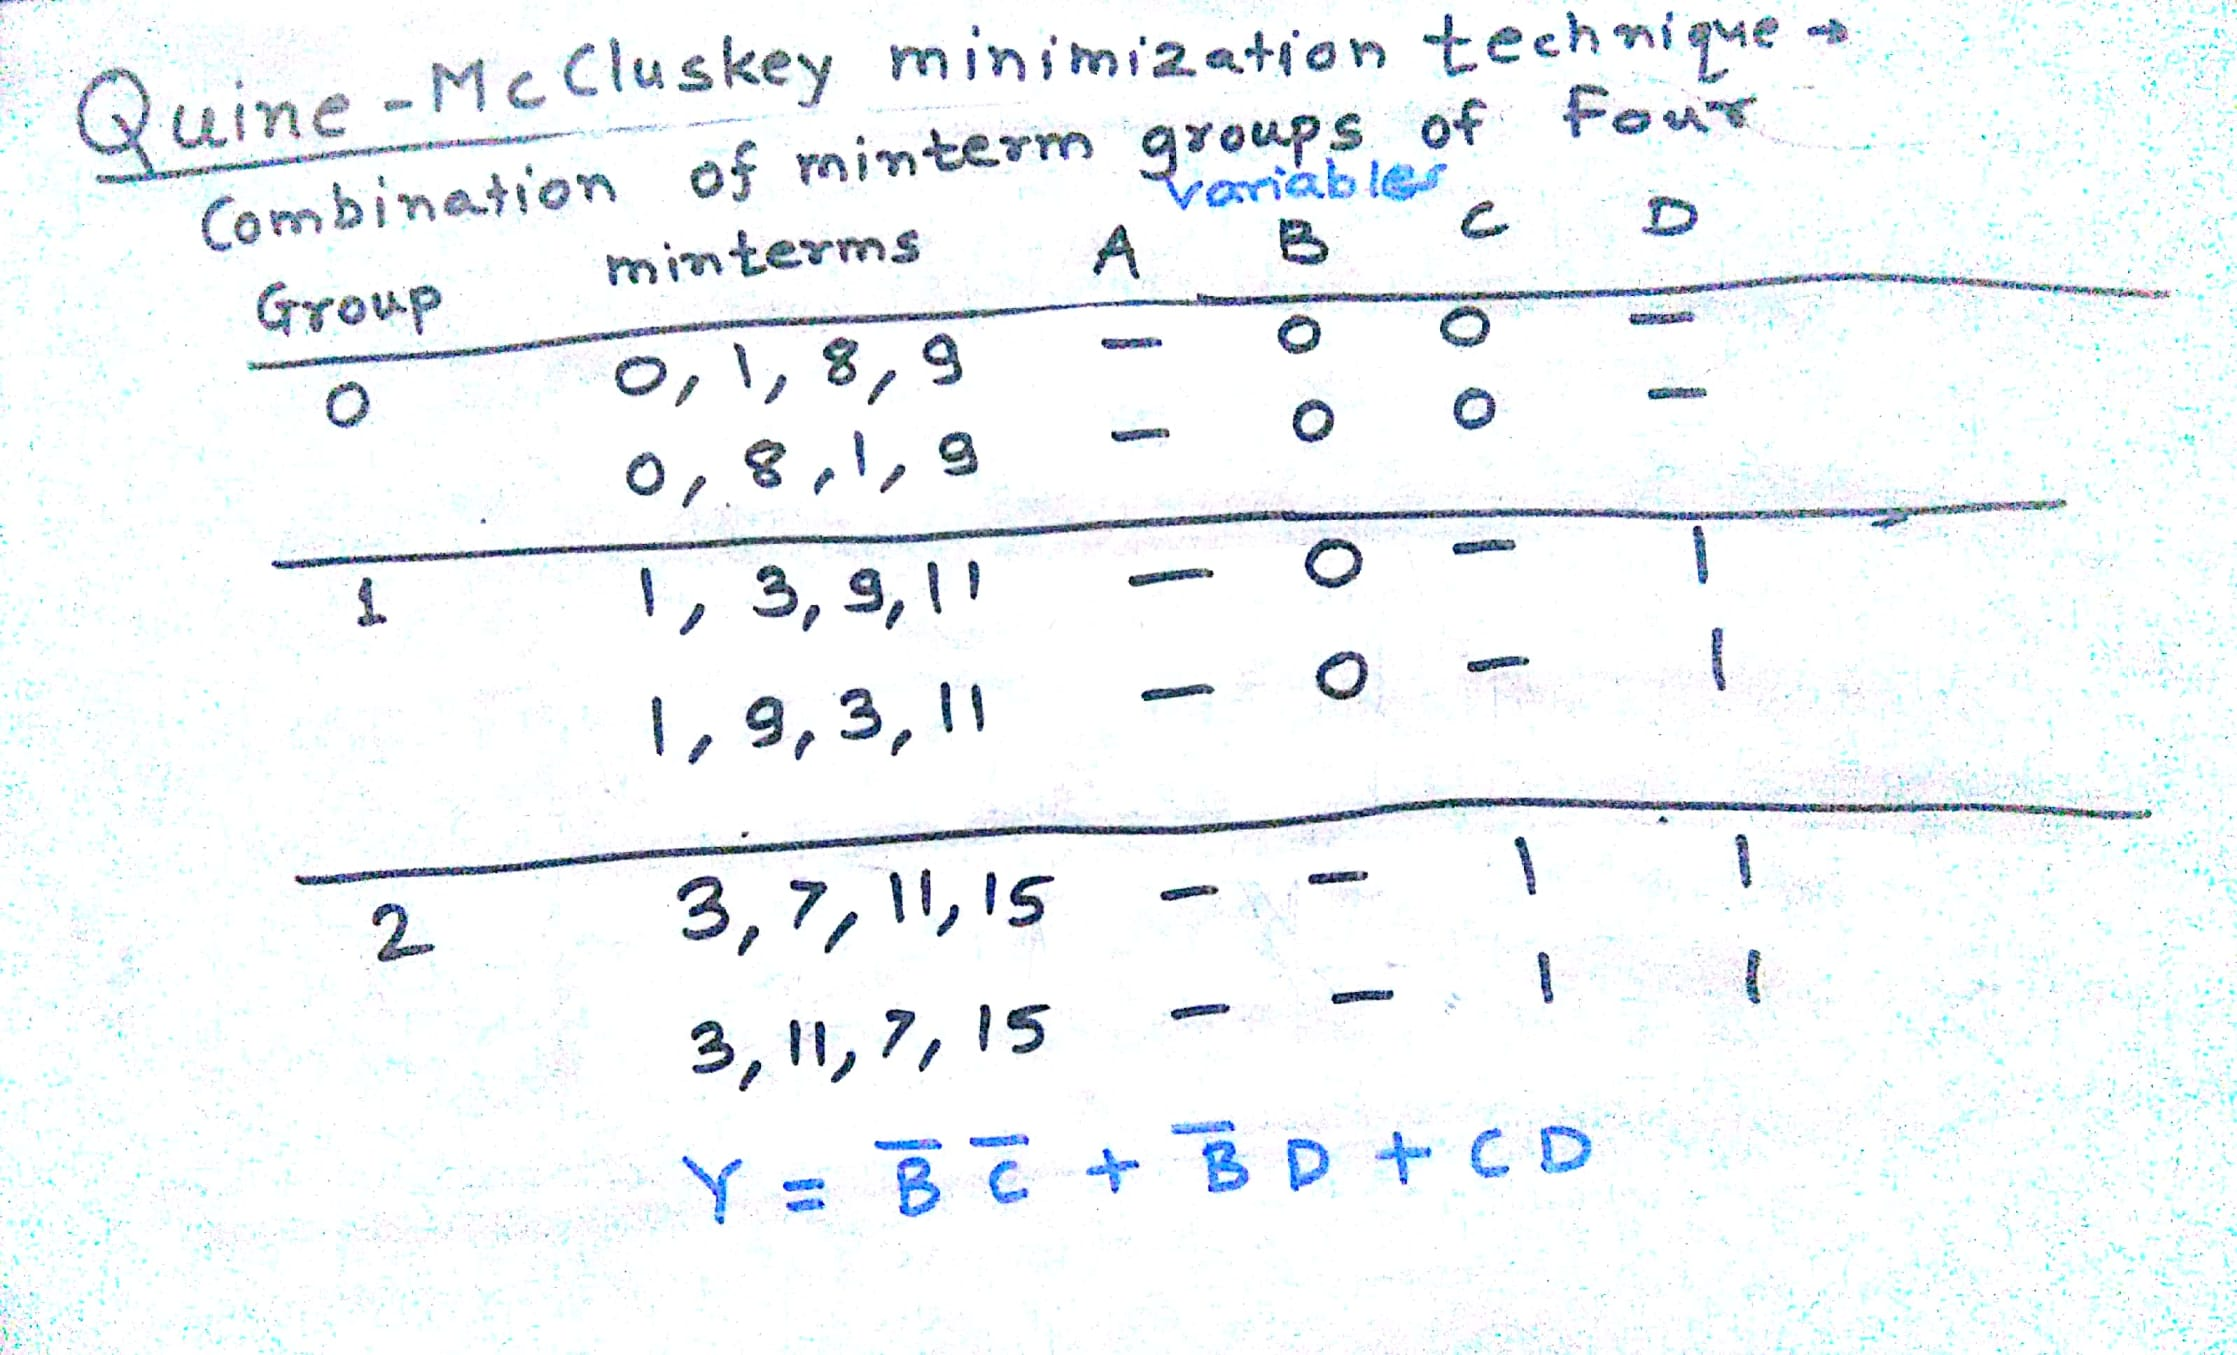 Quine-McCluskey minimization technique →
Combination of minterm groups of Four
variables
Group minterms A B C D
0 0, 1, 8, 9 – 0 0 –
0, 8, 1, 9 – 0 0 –
1 1, 3, 9, 11 – 0 – 1
1, 9, 3, 11 – 0 – 1
2 3, 7, 11, 15 – – 1 1
3, 11, 7, 15 – – 1 1
Y = B̅ C̅ + B̅ D + C D